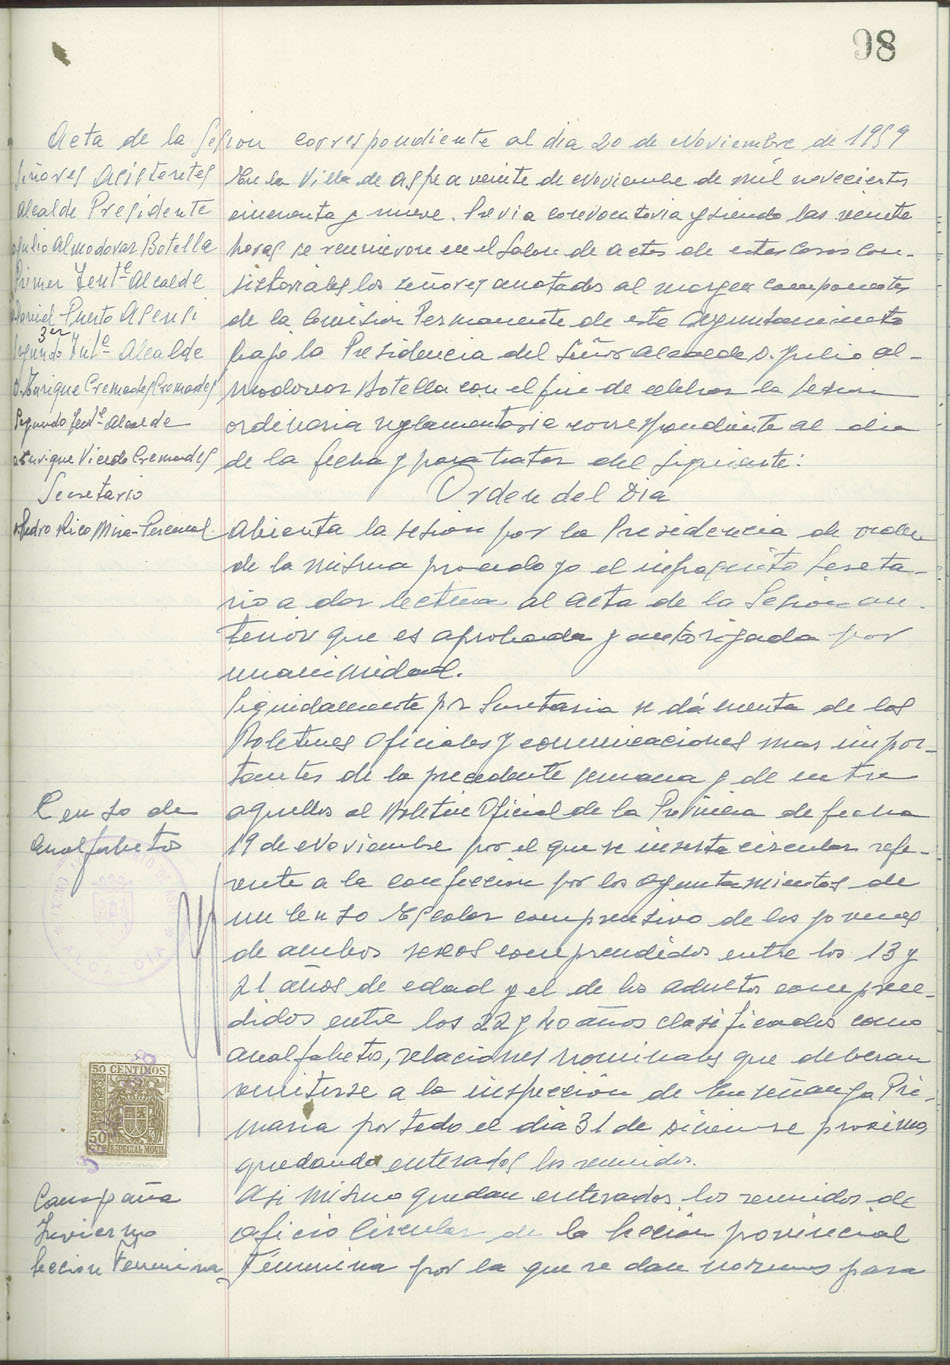 98
Acta de la Sesion correspondiente al dia 20 de Noviembre de 1959
Señores Asistentes
Alcalde Presidente
Julio Almodovar Botella
Primer Tente Alcalde
Daniel Puerto Asensi
3er
Segundo Tnte Alcalde
D. Enrique Cremades Cremades
Segundo Tente Alcalde
Enrique Vicedo Cremades
Secretario
Pedro Rico Mira-Perceval
En la Villa de Aspe a veinte de Noviembre de mil novecientos
cincuenta y nueve. Previa convocatoria y siendo las veinte
horas se reunieron en el Salon de actos de estas Casas Con-
sistoriales los señores anotados al margen componentes
de la Comision Permanente de este Ayuntamiento
bajo la Presidencia del Señor Alcalde D. Julio Al-
modovar Botella con el fin de celebrar la Sesion
ordinaria reglamentaria correspondiente al dia
de la fecha y para tratar del siguiente:
Orden del Dia
Abierta la sesion por la Presidencia de orden
de la misma procedo yo el infrascrito Secreta-
rio a dar lectura al acta de la Sesion an-
terior que es aprobada y autorizada por
unanimidad.
Seguidamente por Secretaria se dá cuenta de los
Boletines Oficiales y comunicaciones mas impor-
tantes de la precedente semana y de entre
aquellos al Boletin Oficial de la Provincia de fecha
19 de Noviembre por el que se inserta circular refe-
rente a la confeccion por los Ayuntamientos de
un Censo Escolar comprensivo de los jovenes
de ambos sexos comprendidos entre los 13 y
21 años de edad y el de los adultos compren-
didos entre los 22 y 40 años clasificados como
analfabetos, relaciones nominales que deberan
remitirse a la inspección de Enseñanza Pri-
maria por todo el dia 31 de Diciembre proximo,
quedando enterados los reunidos.
Asi mismo quedan enterados los reunidos de
oficio Circular de la Sección provincial
Femenina por la que se dan normas para
Censo de
Analfabetos
50 CENTIMOS
50
ESPECIAL MOVIL
Campaña
Invierno
Seccion Femenina